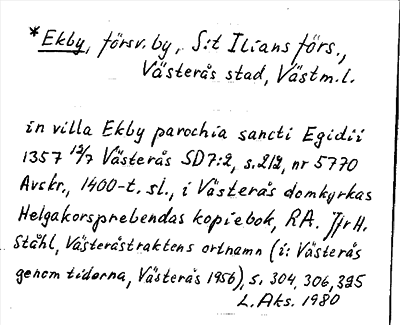 *Ekby, försv. by, S:t Ilians förs.,
Västerås stad, Västm.l.
in villa Ekby parochia sancti Egidii
1357 12/7 Västerås SD7:2, s. 212, nr 5770
Avskr., 1400-t. sl., i Västerås domkyrkas
Helgakorsprebendas kopiebok, RA. Jfr H.
Ståhl, Västeråstraktens ortnamn (i: Västerås
genom tiderna, Västerås 1956), s. 304, 306, 325
L. Aks. 1980